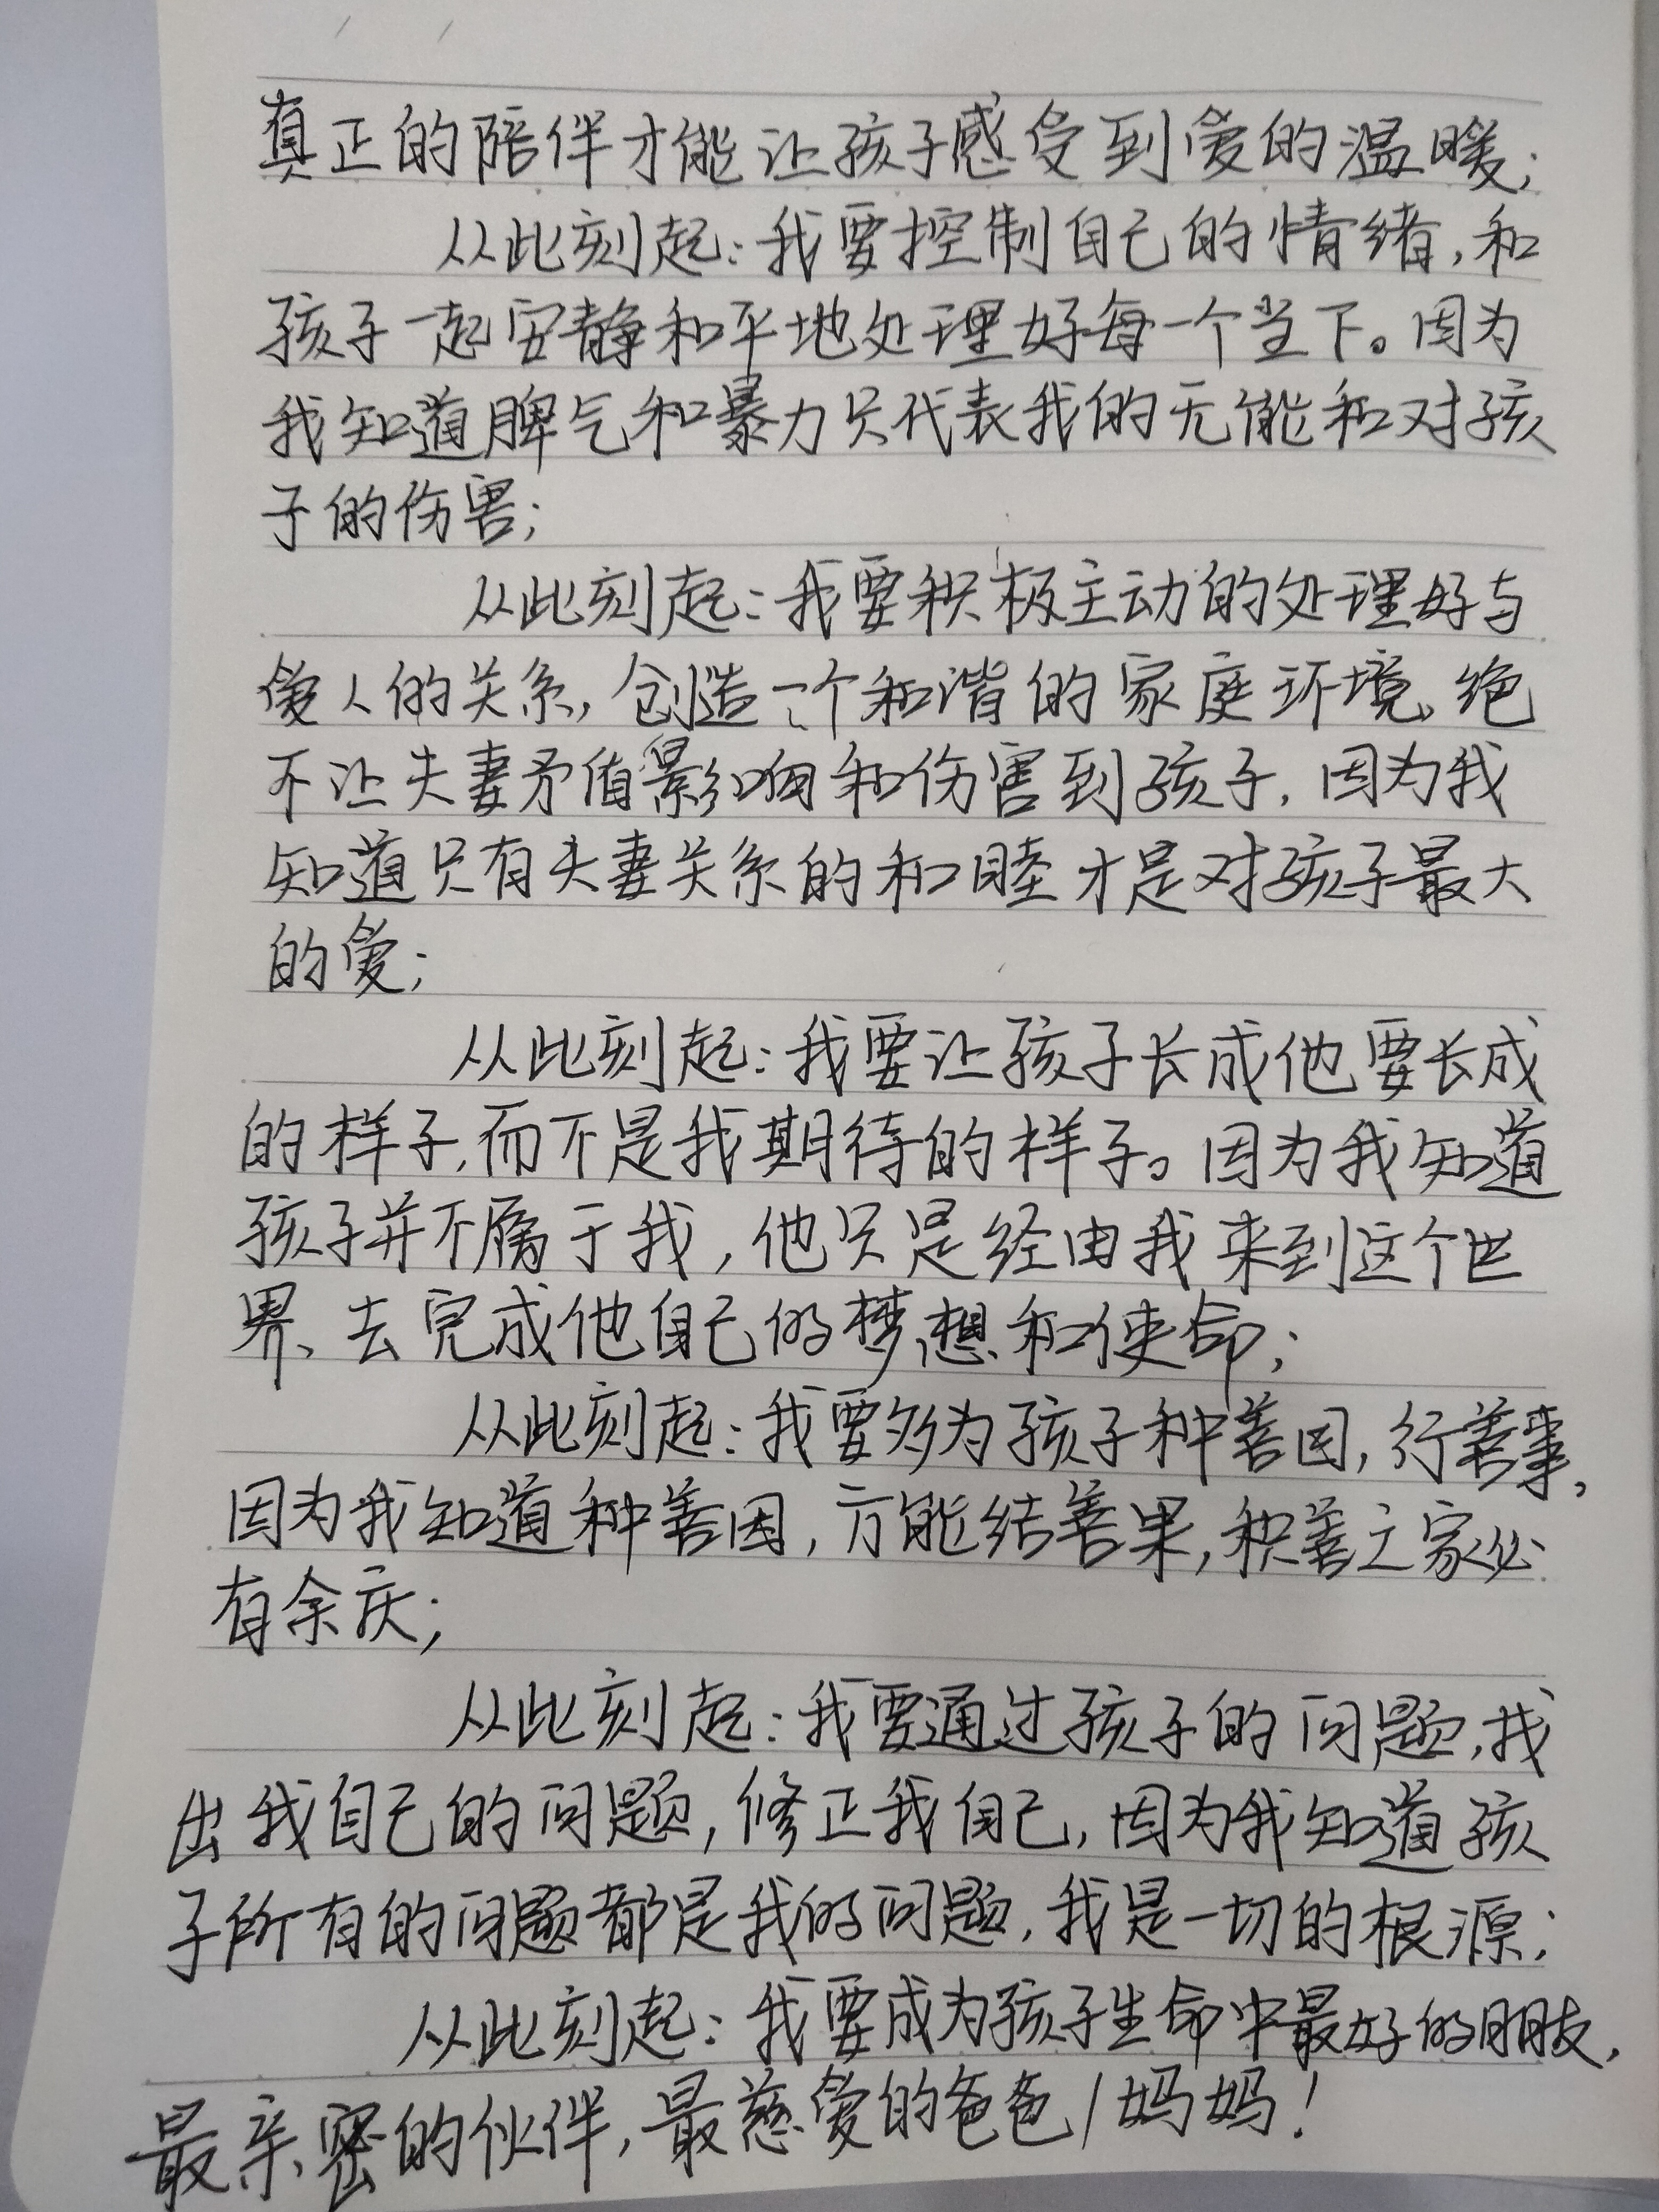 真正的陪伴才能让孩子感受到爱的温暖;
从此刻起:我要控制自己的情绪,和
孩子一起安静和平地处理好每一个当下。因为
我知道脾气和暴力只代表我的无能和对孩
子的伤害;
从此刻起:我要积极主动的处理好与
爱人的关系,创造一个和谐的家庭环境、绝
不让夫妻矛盾影响和伤害到孩子,因为我
知道只有夫妻关系的和睦才是对孩子最大
的爱;
从此刻起:我要让孩子长成他要长成
的样子,而不是我期待的样子。因为我知道
孩子并不属于我,他只是经由我来到这个世
界、去完成他自己的梦想和使命;
从此刻起:我要多为孩子种善因,行善事,
因为我知道种善因,方能结善果,积善之家必
有余庆;
从此刻起:我要通过孩子的问题,找
出我自己的问题,修正我自己,因为我知道孩
子所有的问题都是我的问题,我是一切的根源;
从此刻起:我要成为孩子生命中最好的朋友,
最亲密的伙伴,最慈爱的爸爸/妈妈!